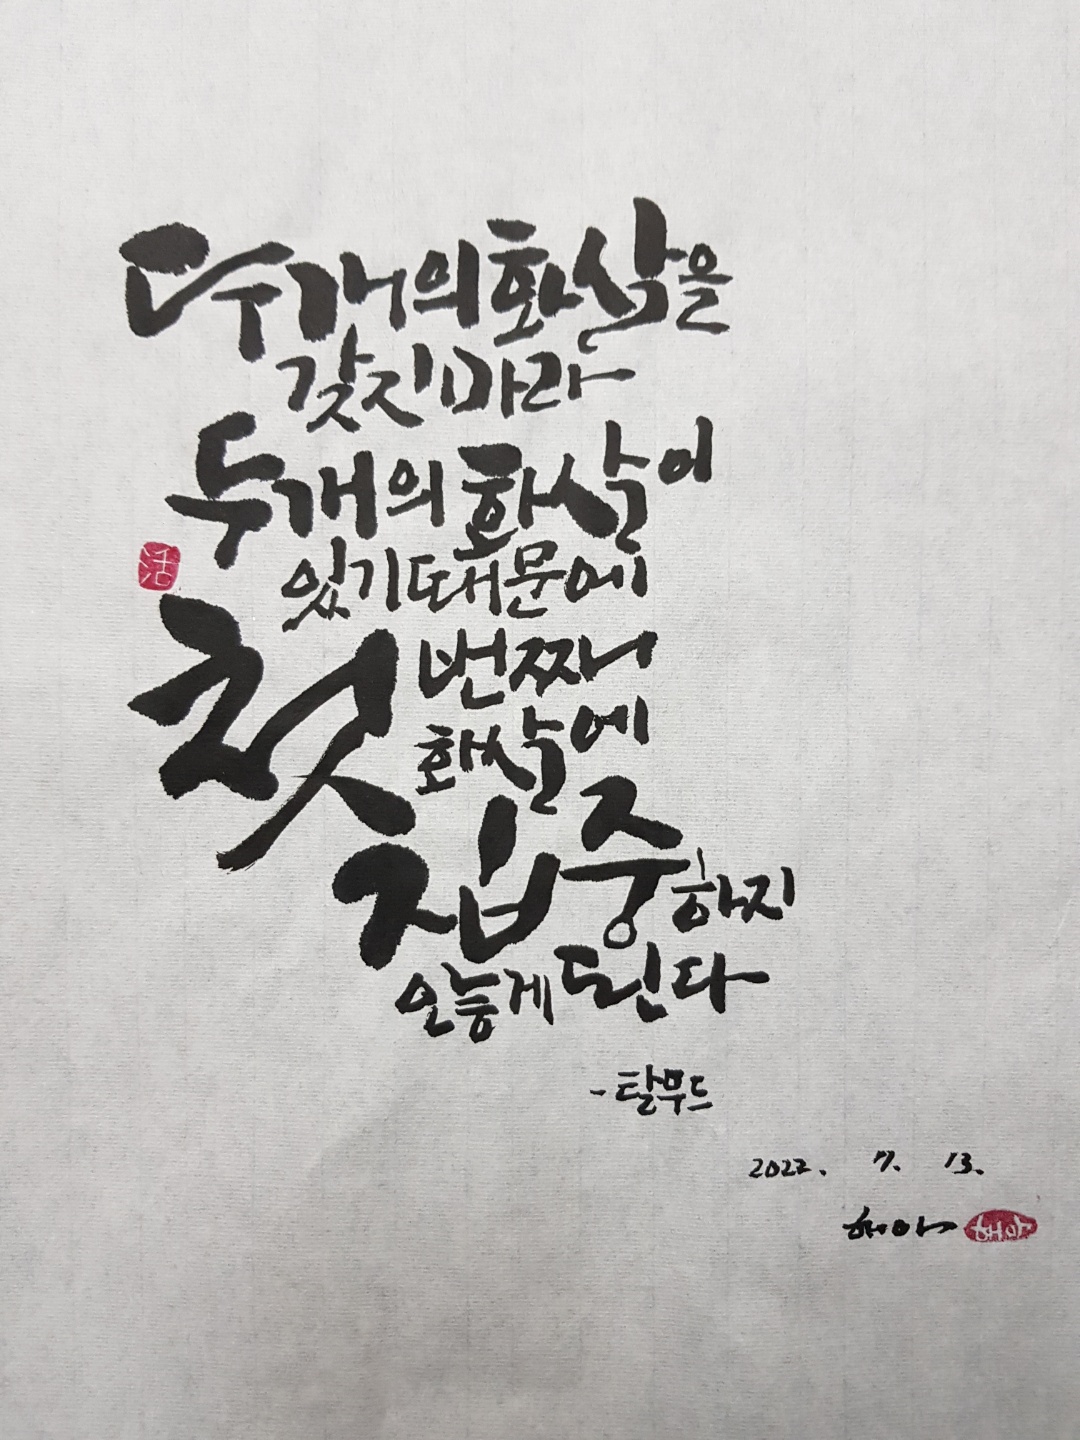 두개의화살을
갖지마라
두개의화살이
있기때문에
첫번째
화살에
집중하지
안늫게된다
-탈무드
2022. 7. 13.
해아
活
해아